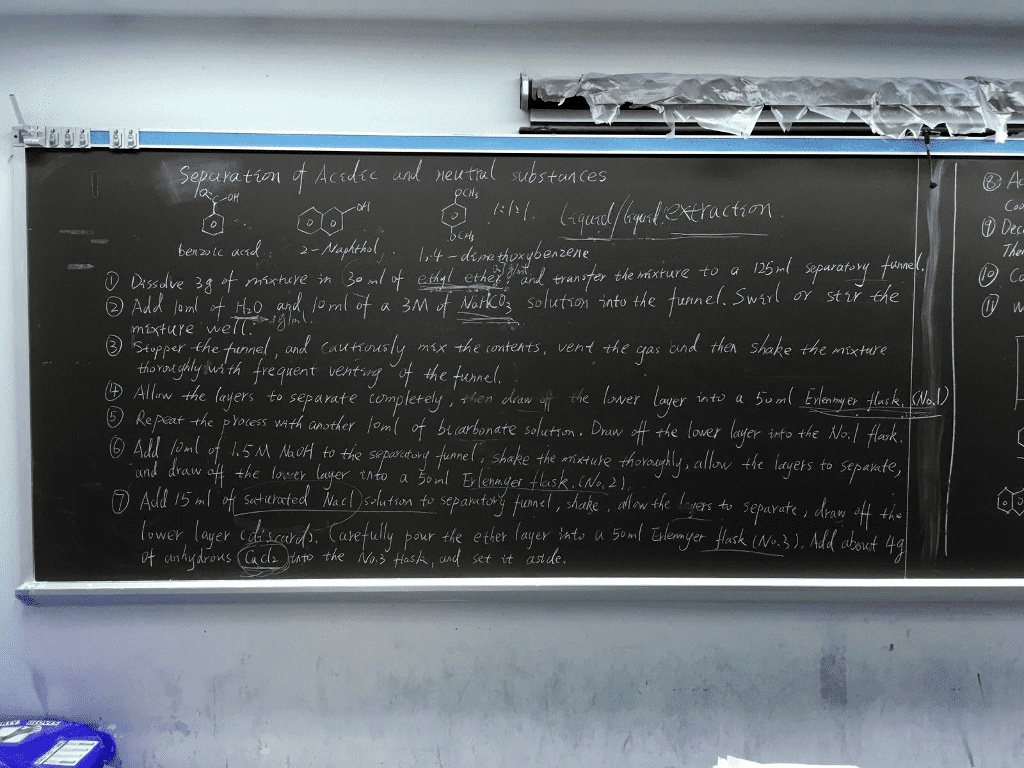 Separation of Acidic and neutral substances
OH
OH
OCH3
OCH3
1:1:1.
Liquid/liquid extraction
benzoic acid.
2-Naphthol.
1,4-dimethoxybenzene
① Dissolve 3g of mixture in 30 ml of ethyl ether, and transfer the mixture to a 125ml separatory funnel.
② Add 10ml of H2O and 10ml of a 3M of NaHCO3 solution into the funnel. Swirl or stir the
mixture well.
③ Stopper the funnel, and cautiously mix the contents, vent the gas and then shake the mixture
thoroughly with frequent venting of the funnel.
④ Allow the layers to separate completely, then draw off the lower layer into a 50ml Erlenmyer flask. (No.1)
⑤ Repeat the process with another 10ml of bicarbonate solution. Draw off the lower layer into the No.1 flask.
⑥ Add 10ml of 1.5M NaOH to the separatory funnel, shake the mixture thoroughly, allow the layers to separate,
and draw off the lower layer into a 50ml Erlenmyer flask. (No.2).
⑦ Add 15 ml of saturated NaCl solution to separatory funnel, shake, allow the layers to separate, draw off the
lower layer (discards). Carefully pour the ether layer into a 50ml Erlenmyer flask (No.3). Add about 4g
of anhydrous CaCl2 into the No.3 flask, and set it aside.
⑧
⑨
⑩
⑪